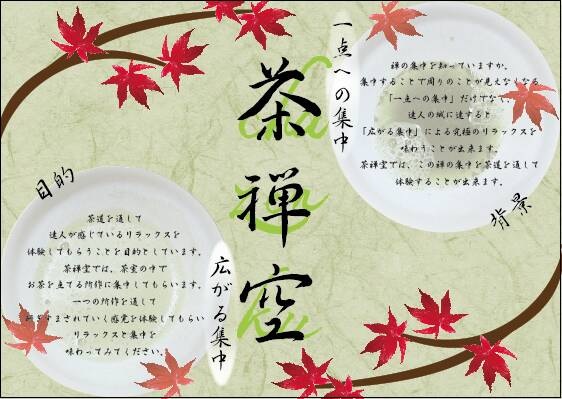 茶禅空
一点への集中
背景
禅の集中を知っていますか。
集中することで周りのことが見えなくなる
「一点への集中」だけでなく、
達人の域に達すると
「広がる集中」による究極のリラックスを
味わうことが出来ます。
茶禅堂では、この禅の集中を茶道を通して
体験することが出来ます。
広がる集中
目的
茶道を通して
達人が感じているリラックスを
体験してもらうことを目的としています。
茶禅堂では、茶室の中で
お茶を立てる所作に集中してもらいます。
一つの所作を通して
研ぎすまされていく感覚を体験してもらい
リラックスと集中を
味わってみてください。